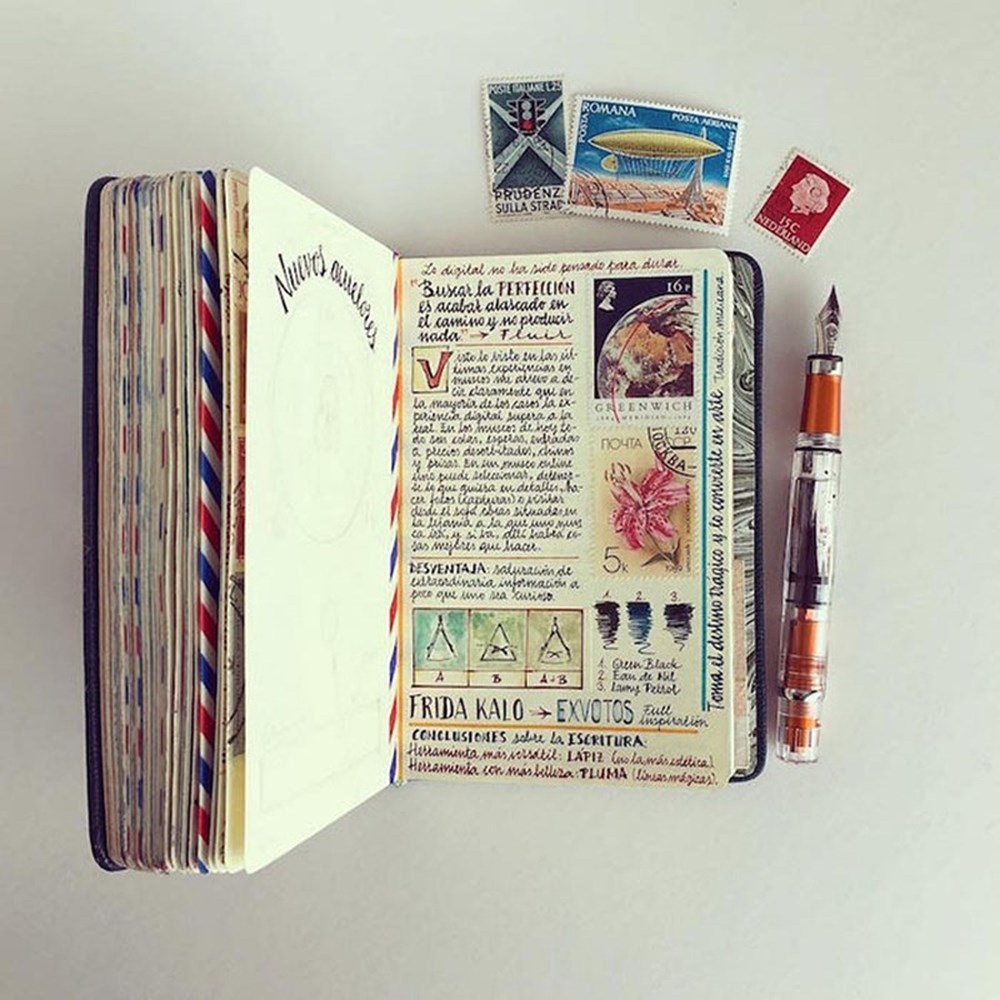 POSTE ITALIANE L.25
PRUDENZ
SULLA STRAD
POSTA ROMANA
POSTA AERIANA
15C
NEDERLAND
Nuevos
Lo digital no ha sido pensado para durar
"Buscar la PERFECCIÓN
es acabar atascado en
el camino y no producir
nada." → Fluir
Visto lo visto en las úl-
timas experiencias en
museos me atrevo a de-
cir claramente que en
la mayoría de los casos la ex-
periencia digital supera a la
real. En los museos de hoy to-
do son colas, esperas, entradas
a precios desorbitados, chinos
y prisas. En un museo online
uno puede seleccionar, detener-
se lo que quiera en detalles, ha-
cer fotos (capturas) o visitar
desde el sofá obras situadas en
la lejanía a la que uno nun
ca irá, y si va, allí habrá co-
sas mejores que hacer.
DESVENTAJA: saturación de
extraordinaria información a
poco que uno sea curioso.
A B A+B
16P
GREENWICH
ПОЧТА СССР
МОСКВА
5к
1. 2. 3.
1. Green Black
2. Eau de Nil
3. Lamy Petrol
FRIDA KALO → EXVOTOS Full
inspiración
CONCLUSIONES sobre la ESCRITURA:
Herramienta más versátil: LÁPIZ (no la más estética).
Herramienta con más belleza: PLUMA (líneas mágicas).
Toma el destino trágico y lo convierte en arte Tradición mexicana